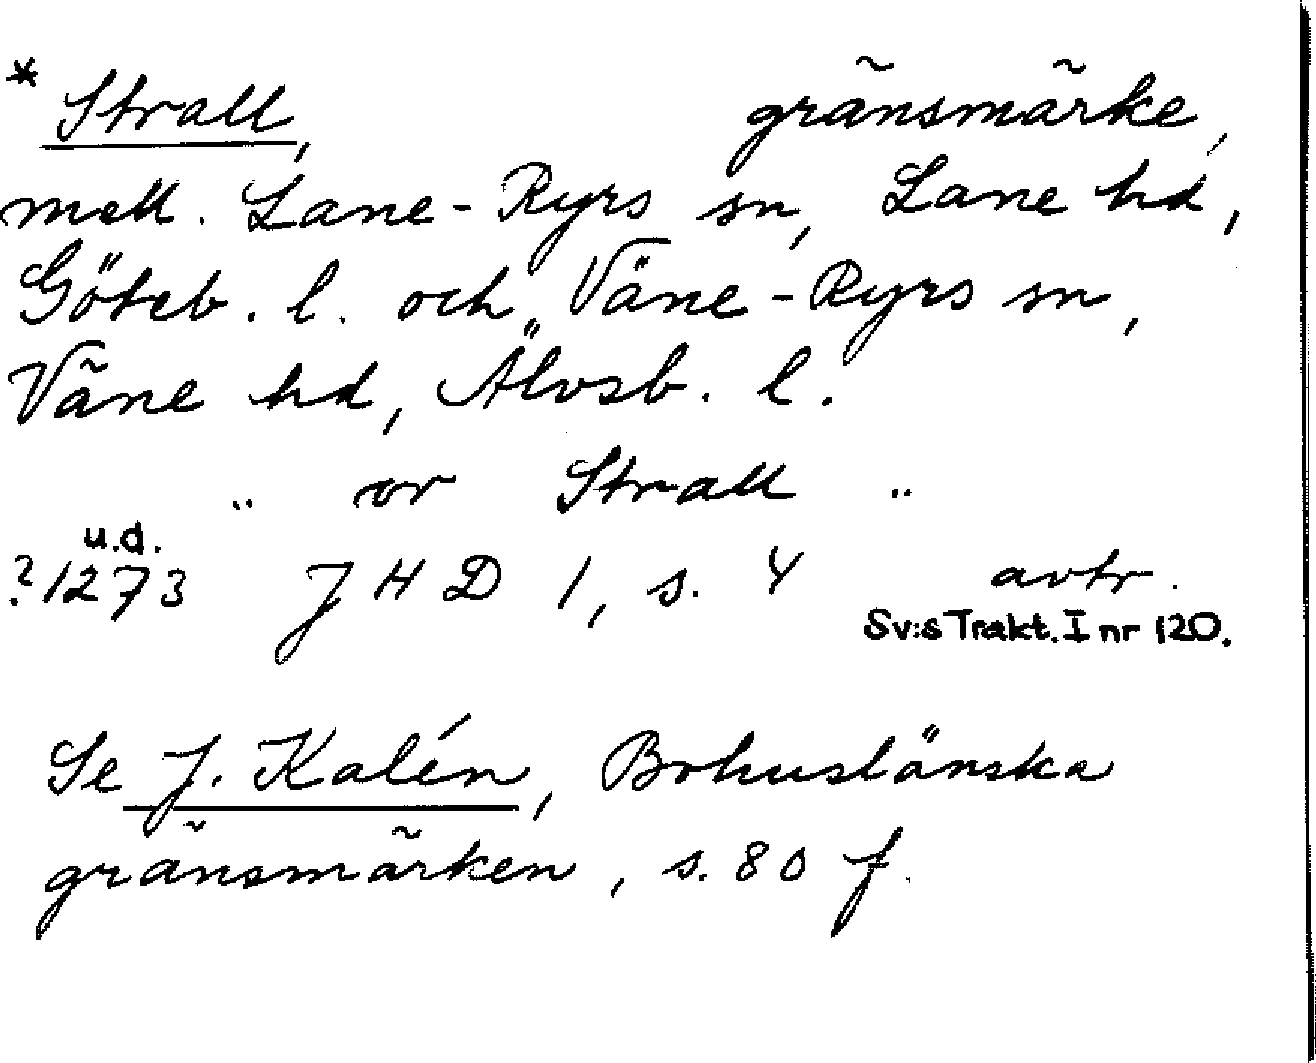 * Strall, gränsmärke,
mell. Lane-Ryrs sn, Lane hd,
Göteb. l. och Väne-Ryrs sn,
Väne hd, Älvsb. l.
" or Strall "
u.d.
?1273 JHD 1, s. 4 avtr.
Sv:s Trakt. I nr 120.
Se J. Kalén, Bohuslänska
gränsmärken, s. 80 f.